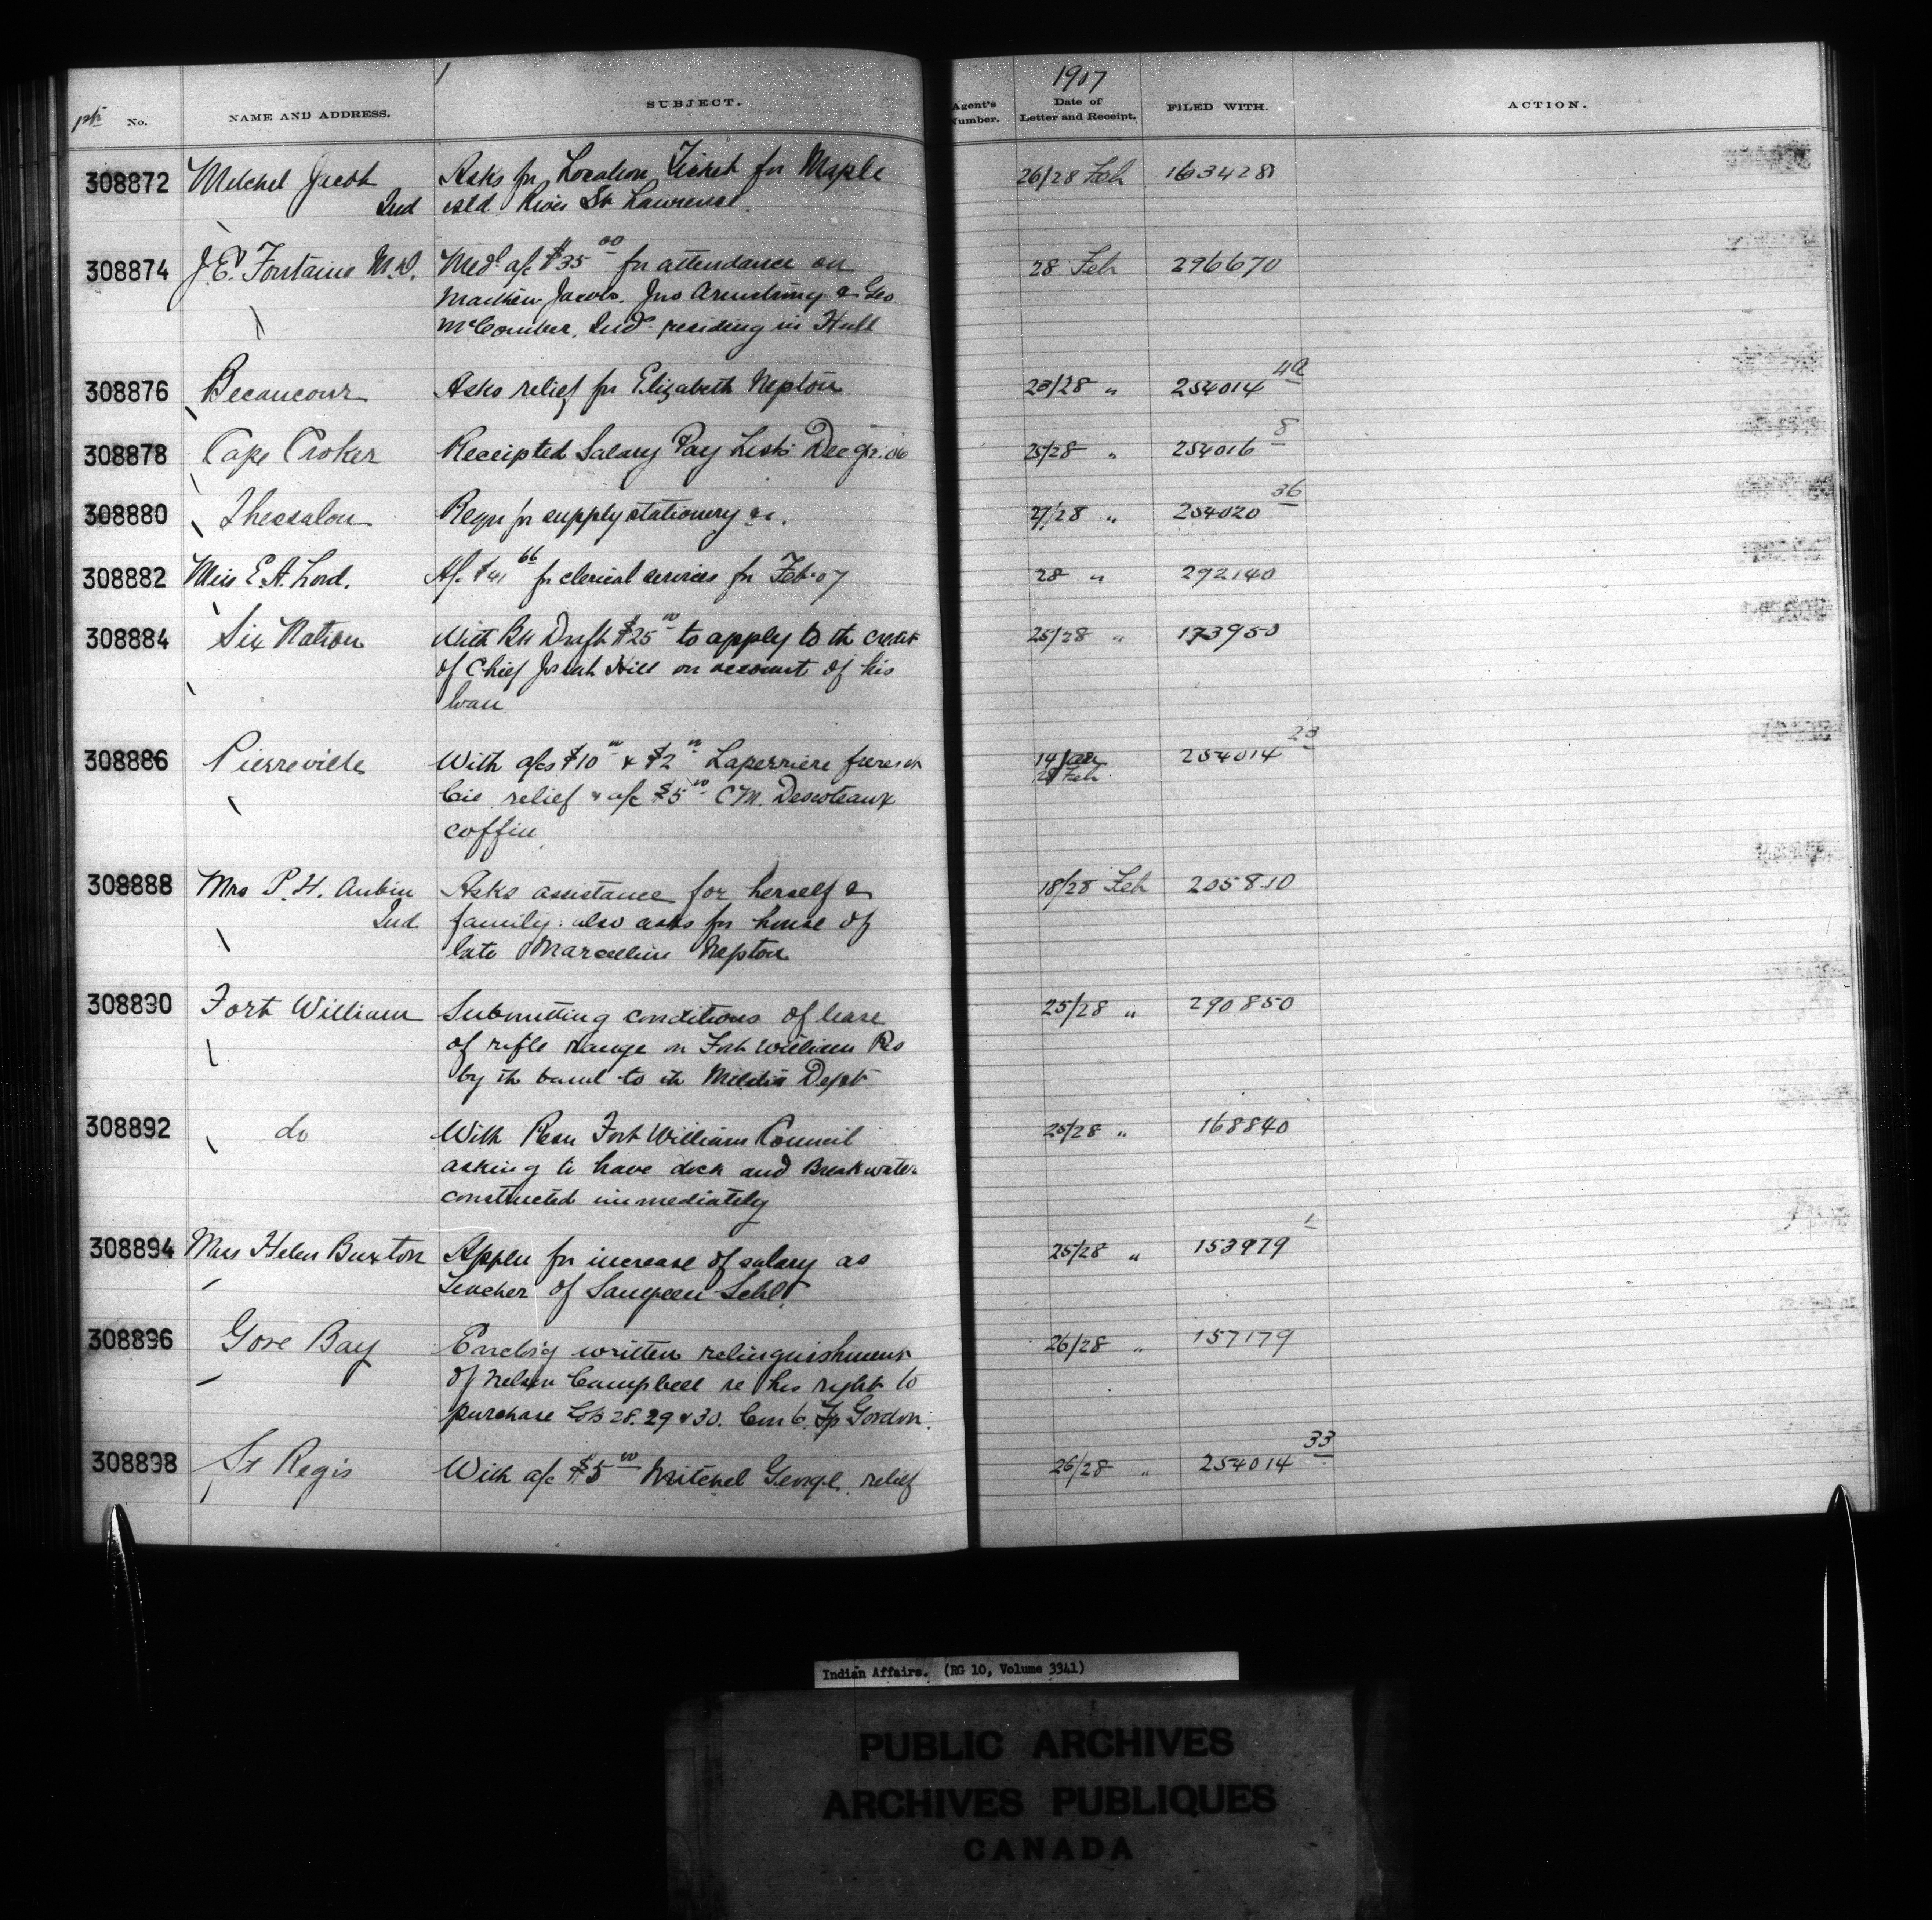 1907
No. NAME AND ADDRESS. SUBJECT. Agent's Number. Date of Letter and Receipt. FILED WITH. ACTION.
308872 Mitchel Jacob Asks for Location Ticket for Maple 26/28 Feb 163428
Ind isld. River St Lawrence.
308874 J.E. Fontaine M.D. Medl a/c $35 00 for attendance on 28 Feb 296670
Matthew Jacobs. Jno Armstrong & Geo
McComber, Inds residing in Hull
308876 Becancour Asks relief for Elizabeth Nepton 23/28 " 254014 40
308878 Cape Croker Receipted Salary Pay Lists Dec qr. 06 25/28 " 254016 8
308880 Thessalon Reqn for supply stationery &c. 27/28 " 254020 36
308882 Miss E.A. Lord. A/c $41 66 for clerical services for Feb. 07 28 " 292140
308884 Six Nation With BM Draft $25 00 to apply to th credit 25/28 " 173950
of Chief Josiah Hill on account of his
loan
308886 Pierreville With a/cs $10 00 & $2 00 Laperriere freres et 14 Jan 254014 23
Cie relief & a/c $5 00 C M. Descoteaux 28 Feb
coffin,
308888 Mrs P.H. Aubin Asks assistance for herself & 18/28 Feb 205810
Ind. family. also asks for house of
late Marcelline Nepton
308890 Fort William Submitting conditions of lease 25/28 " 290850
of rifle range on Fort William Res
by th band to th Militia Dept
308892 do With Resn Fort William Council 25/28 " 168840
asking to have dock and Breakwater
constructed immediately
308894 Miss Helen Buxton Appln for increase of salary as 25/28 " 153979 1
teacher of Saugeen Schl.
308896 Gore Bay Enclsg written relinquishment 26/28 " 157179
of Nelson Campbell re his right to
purchase Lots 28. 29 & 30. Con 6. Tp Gordon.
308898 St Regis With a/c $5 00 Mitchel George. relief 26/28 " 254014 33
Indian Affairs. (RG 10, Volume 3341)
PUBLIC ARCHIVES
ARCHIVES PUBLIQUES
CANADA